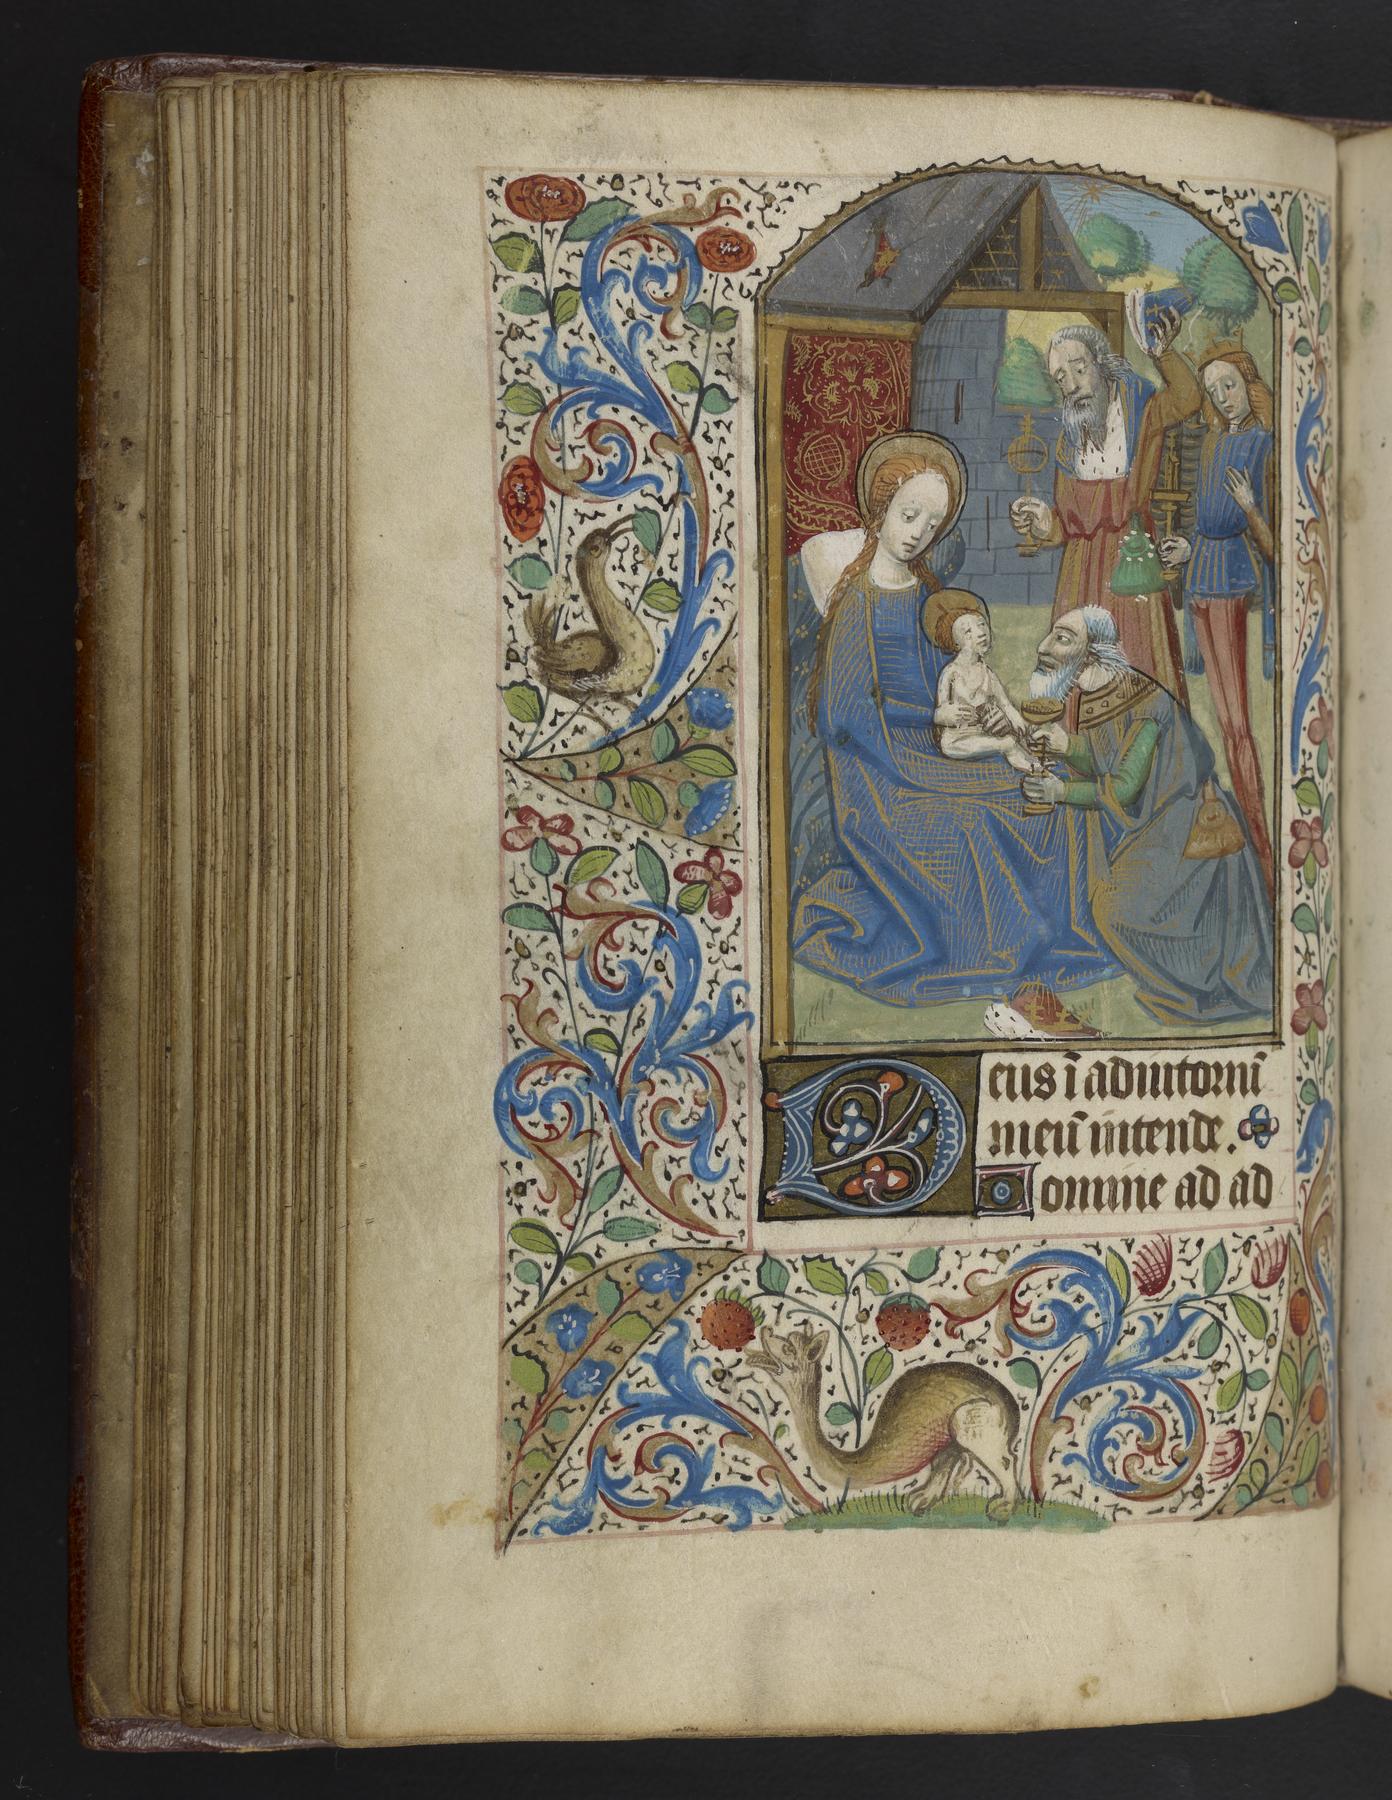 Deus ī adiutoriū
meū intende.
Domine ad ad